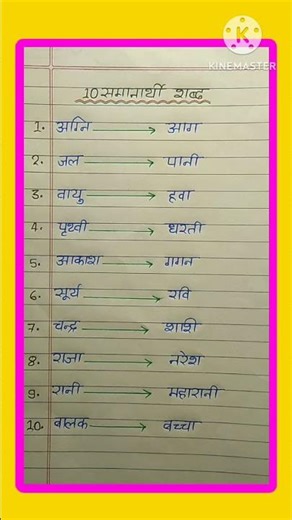 KINEMASTER
10 समानार्थी शब्द
1. अग्नि → आग
2. जल → पानी
3. वायु → हवा
4. पृथ्वी → धरती
5. आकाश → गगन
6. सूर्य → रवि
7. चन्द्र → शशी
8. राजा → नरेश
9. रानी → महारानी
10. बालक → बच्चा